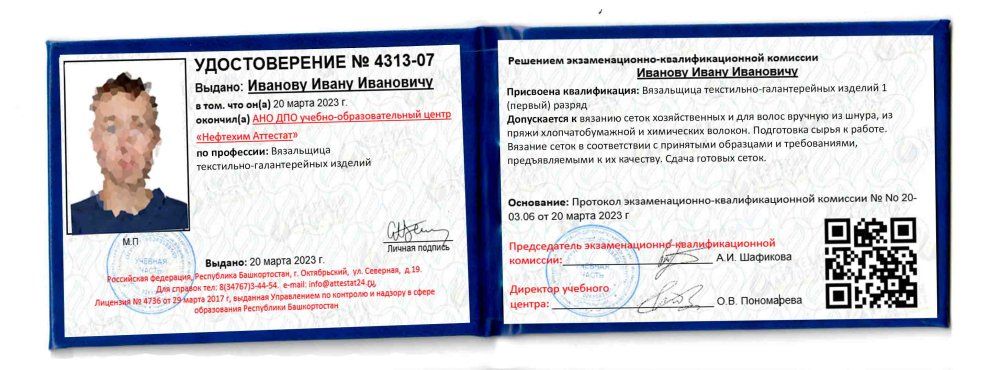 УДОСТОВЕРЕНИЕ № 4313-07
Выдано: Иванову Ивану Ивановичу
в том. что он(а) 20 марта 2023 г.
окончил(а) АНО ДПО учебно-образовательный центр
«Нефтехим Аттестат»
по профессии: Вязальщица
текстильно-галантерейных изделий
М.П
Личная подпись
УЧЕБНАЯ
ЧАСТЬ
Выдано: 20 марта 2023 г.
Российская федерация, Республика Башкортостан, г. Октябрьский, ул. Северная, д.19.
Для справок тел: 8(34767)3-44-54. e-mail: info@attestat24.ru,
Лицензия № 4736 от 29 марта 2017 г, выданная Управлением по контролю и надзору в сфере
образования Республики Башкортостан
Решением экзаменационно-квалификационной комиссии
Иванову Ивану Ивановичу
Присвоена квалификация: Вязальщица текстильно-галантерейных изделий 1
(первый) разряд
Допускается к вязанию сеток хозяйственных и для волос вручную из шнура, из
пряжи хлопчатобумажной и химических волокон. Подготовка сырья к работе.
Вязание сеток в соответствии с принятыми образцами и требованиями,
предъявляемыми к их качеству. Сдача готовых сеток.
Основание: Протокол экзаменационно-квалификационной комиссии № No 20-
03.06 от 20 марта 2023 г
Председатель экзаменационно-квалификационной
комиссии: А.И. Шафикова
УЧЕБНАЯ
ЧАСТЬ
Директор учебного
центра: О.В. Пономарева